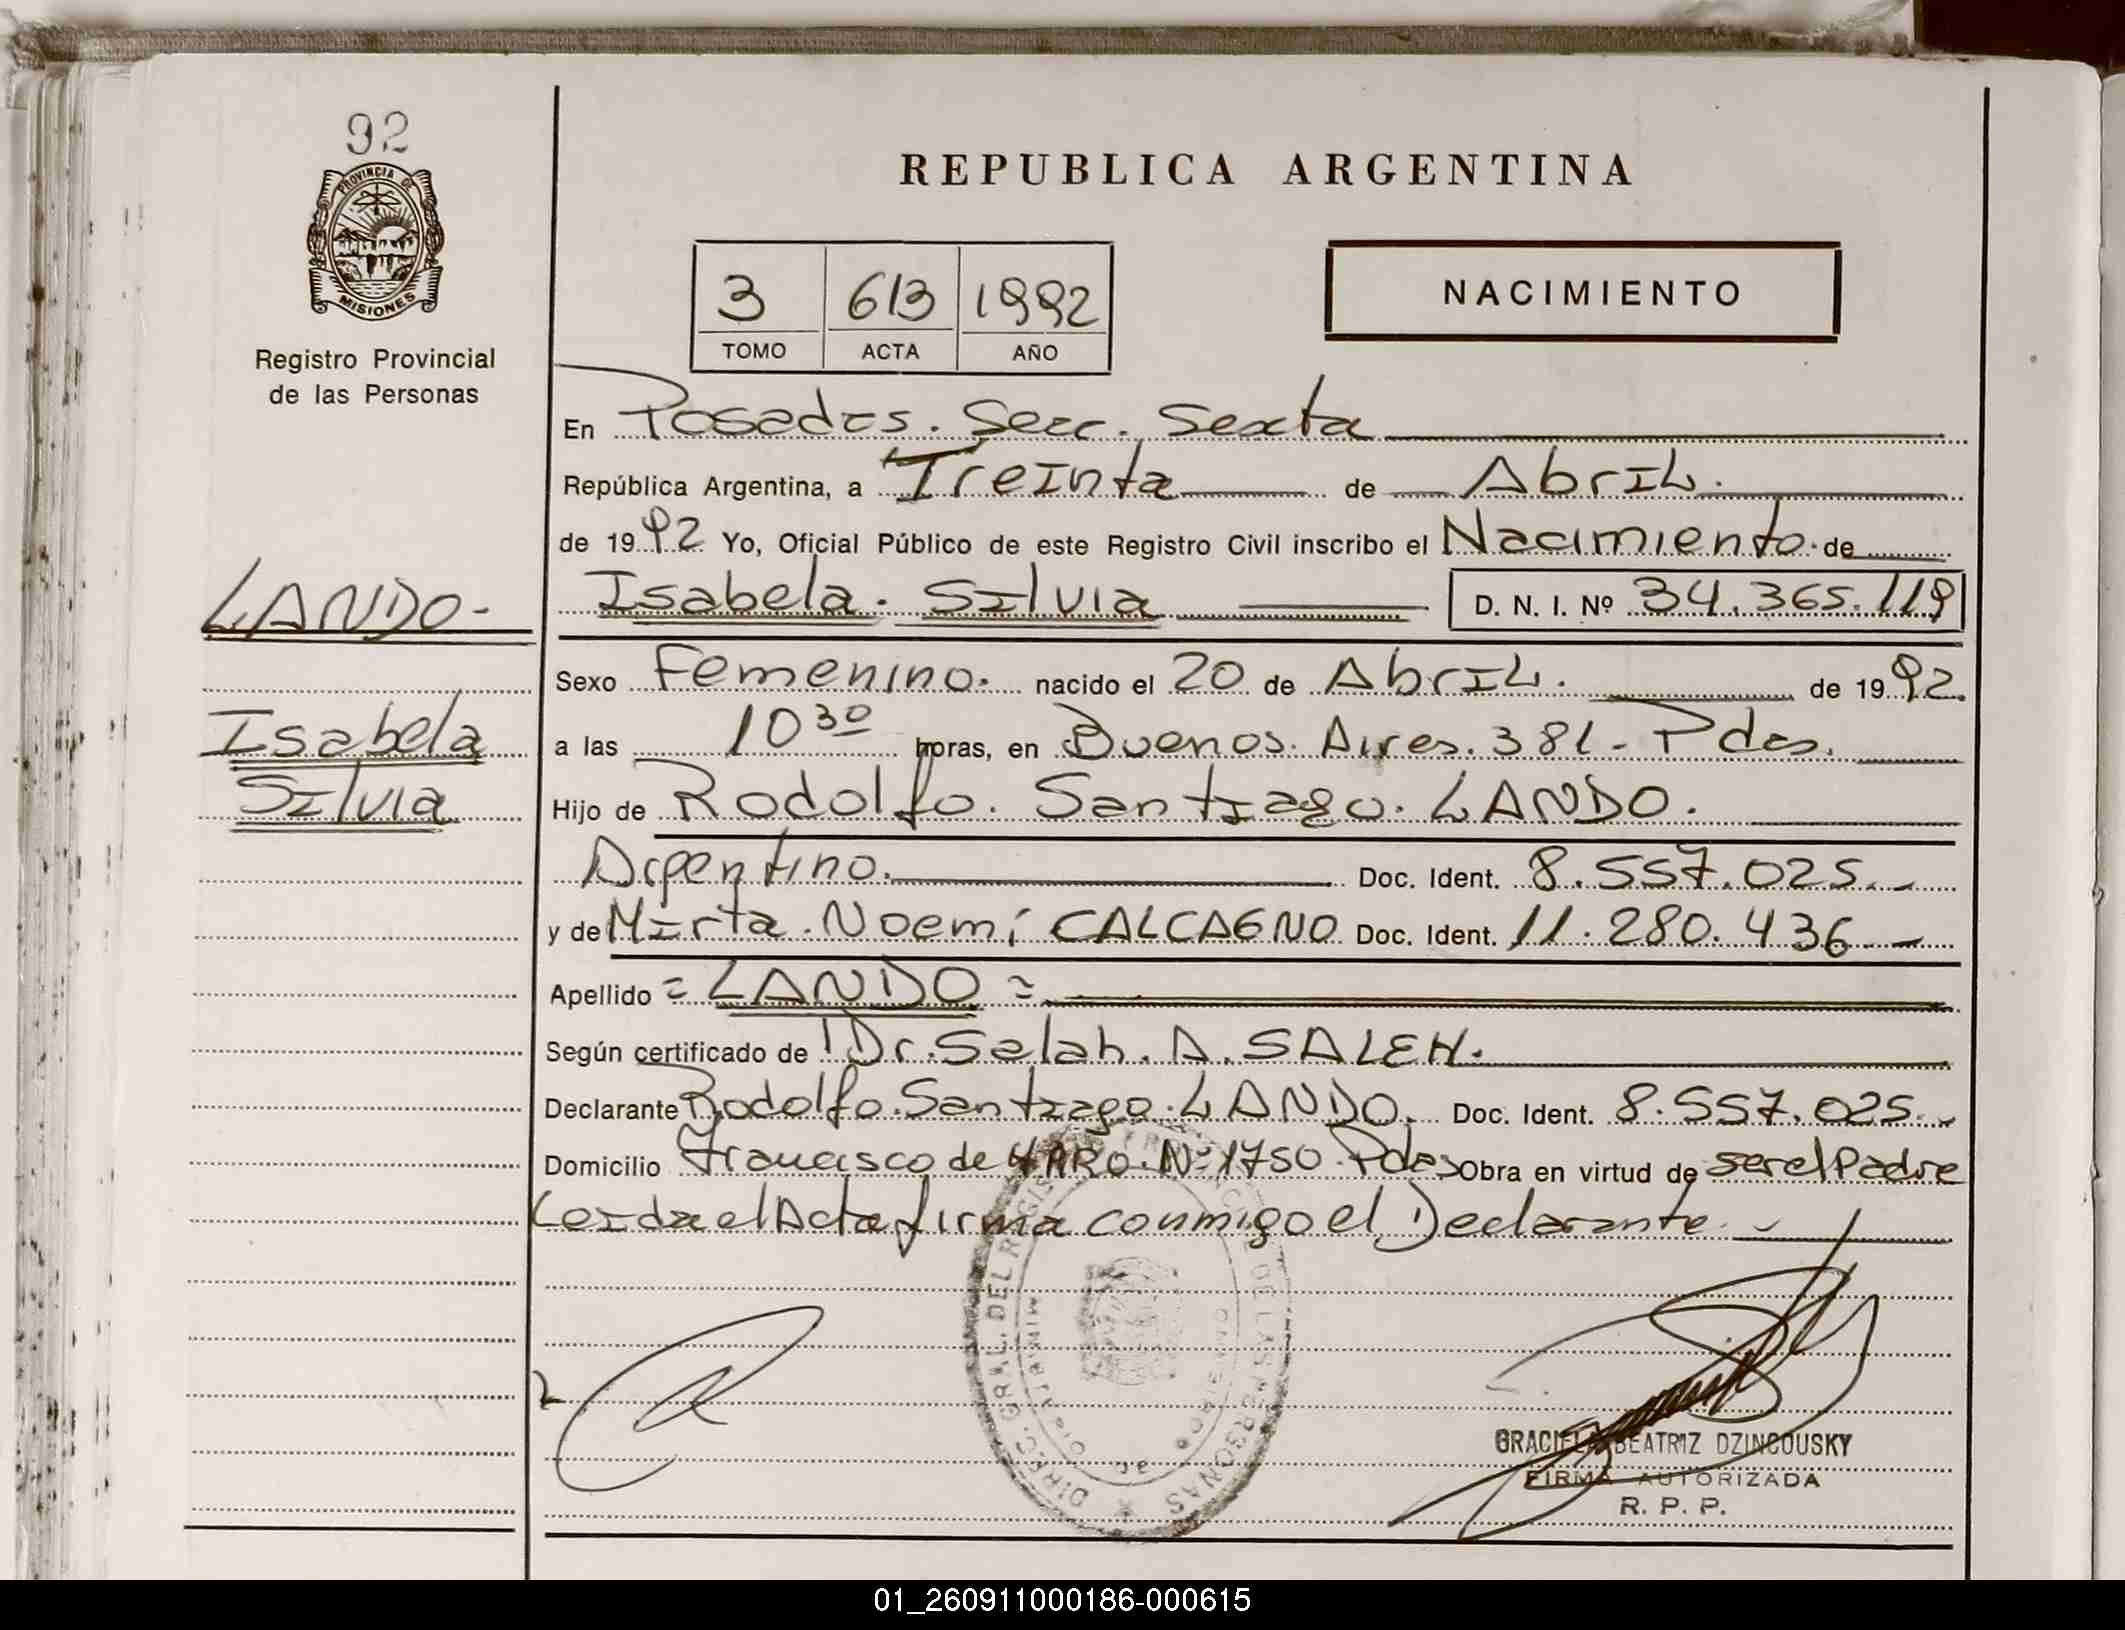 92
PROVINCIA DE
MISIONES
Registro Provincial
de las Personas
REPUBLICA ARGENTINA
3 613 1992
TOMO ACTA AÑO
NACIMIENTO
En Posadas. Secc. Sexta
República Argentina, a Treinta de Abril.
de 1992 Yo, Oficial Público de este Registro Civil inscribo el Nacimiento de
LANDO-
Isabela. Silvia D. N. I. Nº 34.365.119
Sexo Femenino. nacido el 20 de Abril. de 1992.
Isabela
a las 10 30 horas, en Buenos. Aires. 381 - Pdas.
Silvia
Hijo de Rodolfo. Santiago. LANDO.
Argentino. Doc. Ident. 8.557.025.-
y de Mirta. Noemí CALCAGNO Doc. Ident. 11.280.436-
Apellido = LANDO =
Según certificado de Dr. Salah. A. SALEH.
Declarante Rodolfo. Santiago. LANDO. Doc. Ident. 8.557.025.-
Domicilio Francisco de HARO. Nº 1750. Pdas Obra en virtud de ser el Padre
Leida el Acta firma conmigo el Declarante.-
DIREC. GRAL. DEL REGIS DE LAS PERSONAS
GRACIELA BEATRIZ DZINCOUSKY
FIRMA AUTORIZADA
R. P. P.
01_260911000186-000615